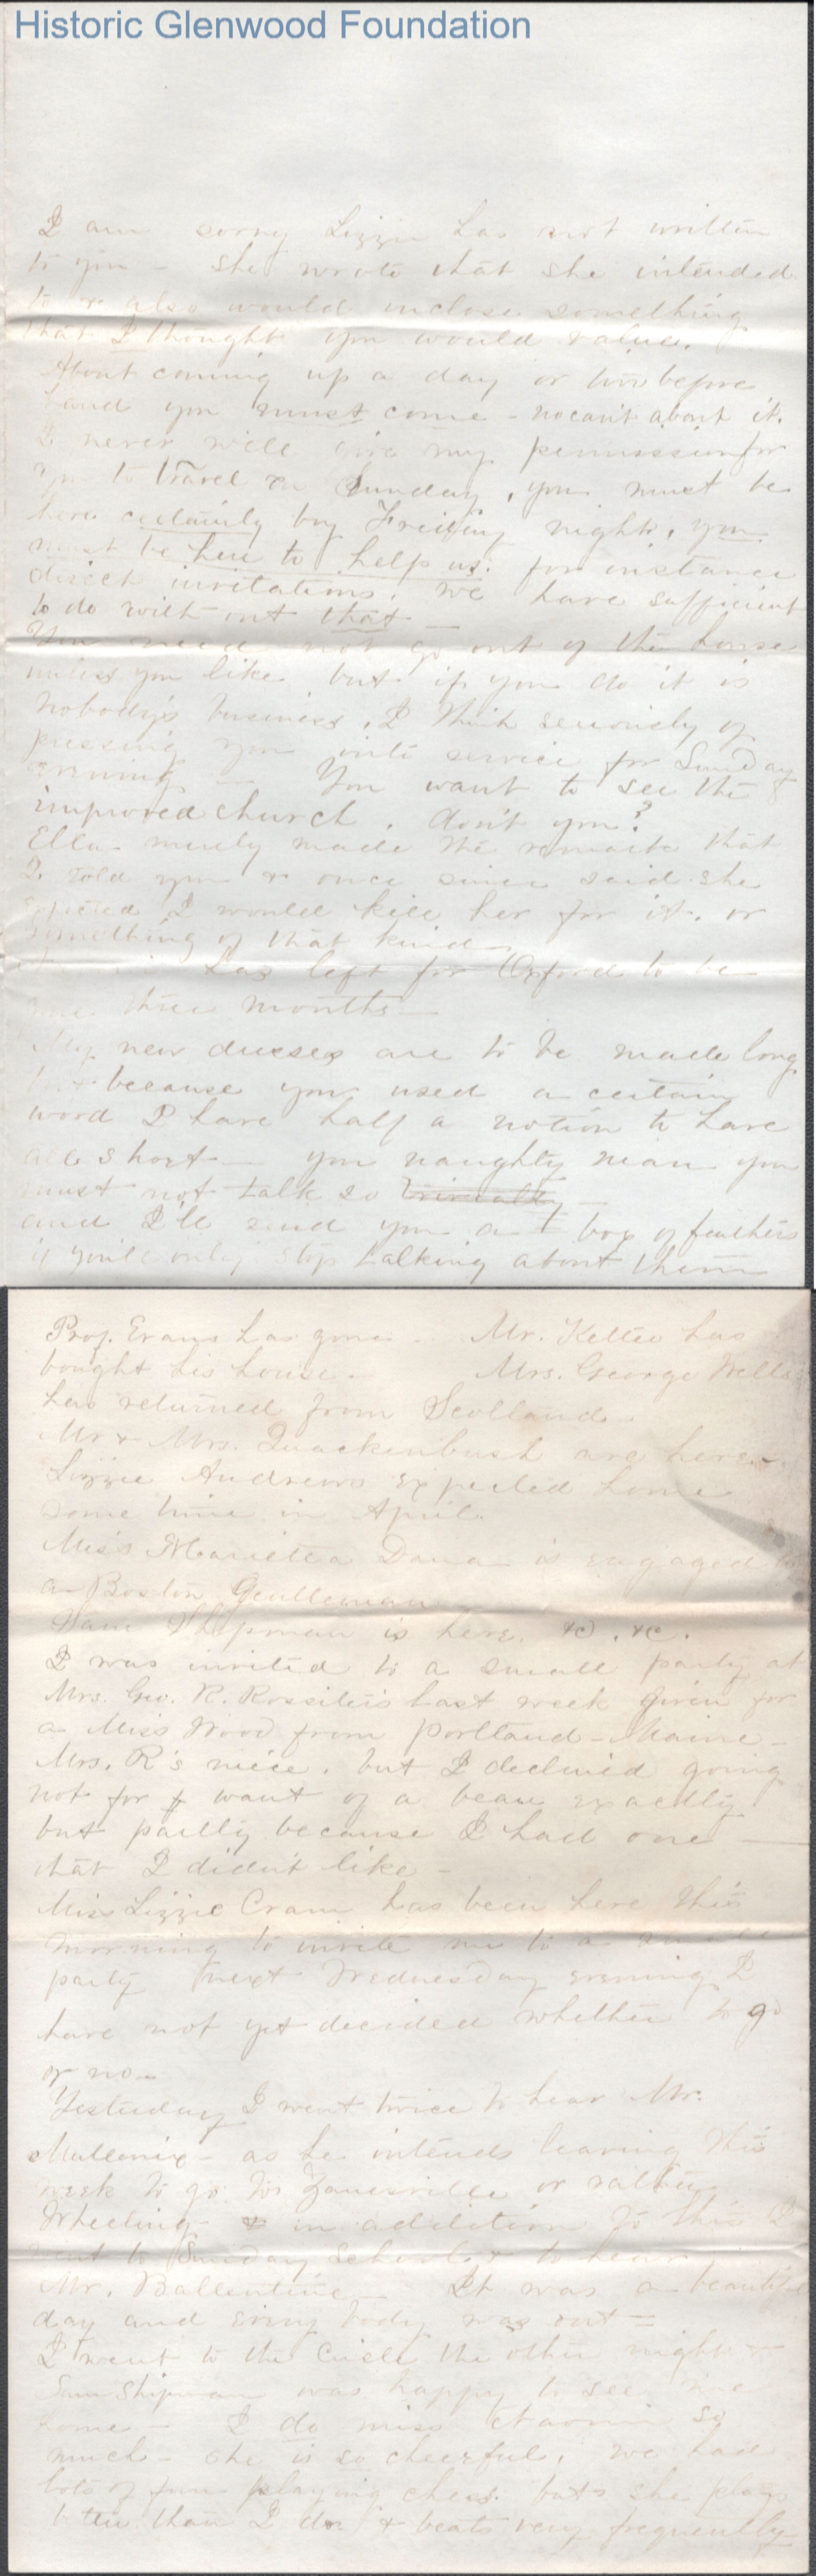 Historic Glenwood Foundation
I am sorry Lizzie has not written
to you - she wrote that she intended
to & also would inclose something
that I thought you would value.
About coming up a day or two before
hand you must come - no can't about it.
I never will give my permission for
you to travel on Sunday, you must be
here certainly by Friday night, you
must be here to help us. for instance
direct invitations. we have sufficient
to do without that -
You need not go out of the house
unless you like but if you do it is
nobody's business. I think seriously of
pressing you into service for Sunday
evening - You want to see the
improved church. don't you?
Ella merely made the remark that
I told you & once since said she
expected I would kill her for it. or
something of that kind -
has left for Oxford to be
three months -
My new dresses are to be made long
& because you used a certain
word I have half a notion to have
all short - you naughty man you
must not talk so
and I'll send you a box of feathers
if you'll only stop talking about them
Prof. Evans has gone - Mr. Kelter has
bought his house. Mrs. George Wells
has returned from Scotland -
Mr & Mrs. Quackenbush are here -
Lizzie Andrews expected home
some time in April.
Miss Marietta Dana is engaged to
a Boston Gentleman
Sam Shipman is here. &c. &c.
I was invited to a small party at
Mrs. Geo. R. Rossiter's last week given for
a Miss Wood from Portland - Maine -
Mrs. R's niece. but I declined going
not for want of a beau exactly
but partly because I had one -
that I didn't like -
Miss Lizzie Cram has been here this
morning to invite me to a small
party next Wednesday evening I
have not yet decided whether to go
or no -
Yesterday I went twice to hear Mr.
Mullenix - as he intends leaving this
week to go to Zanesville or rather
Wheeling - & in addition to this I
went to Sunday School & to hear
Mr. Ballentine - It was a beautiful
day and every body was out =
I went to the Circle the other night &
Sam Shipman was happy to see me
home - I do miss Naomi so
much - she is so cheerful, we had
lots of fun playing chess. but she plays
better than I do & beats very frequently